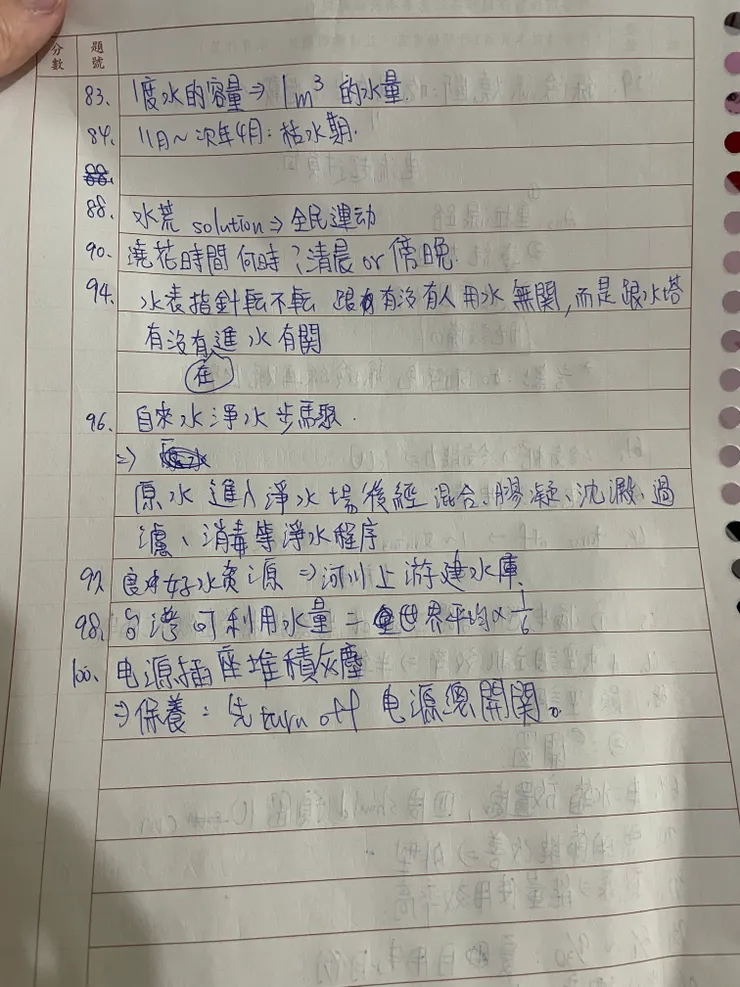 分數 題號
83. 1度水的容量⇒1m³的水量.
84. 11月~次年4月:枯水期.
88. 水荒 solution⇒全民運動
90. 澆花時間何時?清晨or傍晚.
94. 水表指針転不転 跟有沒有人用水無関,而是跟水塔
有沒有進水有關
在
96. 自來水淨水步驟.
⇒
原水進入淨水場後經混合、膠凝、沈澱、過
濾、消毒等淨水程序
97. 良好水資源⇒河川上游建水庫
98. 台灣可利用水量=世界平均×1/6
100. 电源插座堆積灰塵
⇒保養:先turn off 电源總開関。